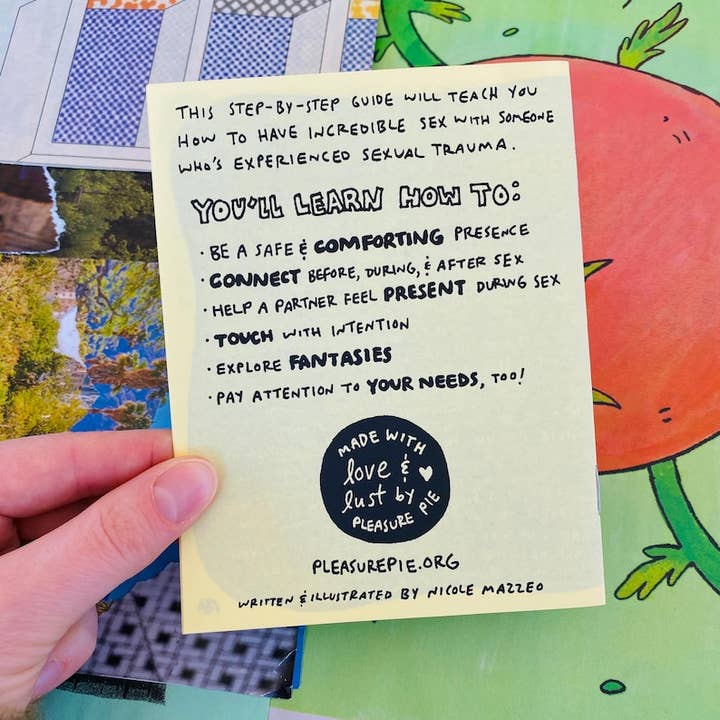 THIS STEP-BY-STEP GUIDE WILL TEACH YOU
HOW TO HAVE INCREDIBLE SEX WITH SOMEONE
WHO'S EXPERIENCED SEXUAL TRAUMA.
YOU'LL LEARN HOW TO:
· BE A SAFE & COMFORTING PRESENCE
· CONNECT BEFORE, DURING, & AFTER SEX
· HELP A PARTNER FEEL PRESENT DURING SEX
· TOUCH WITH INTENTION
· EXPLORE FANTASIES
· PAY ATTENTION TO YOUR NEEDS, TOO!
MADE WITH
love &
lust by
PLEASURE PIE
PLEASUREPIE.ORG
WRITTEN & ILLUSTRATED BY NICOLE MAZZEO